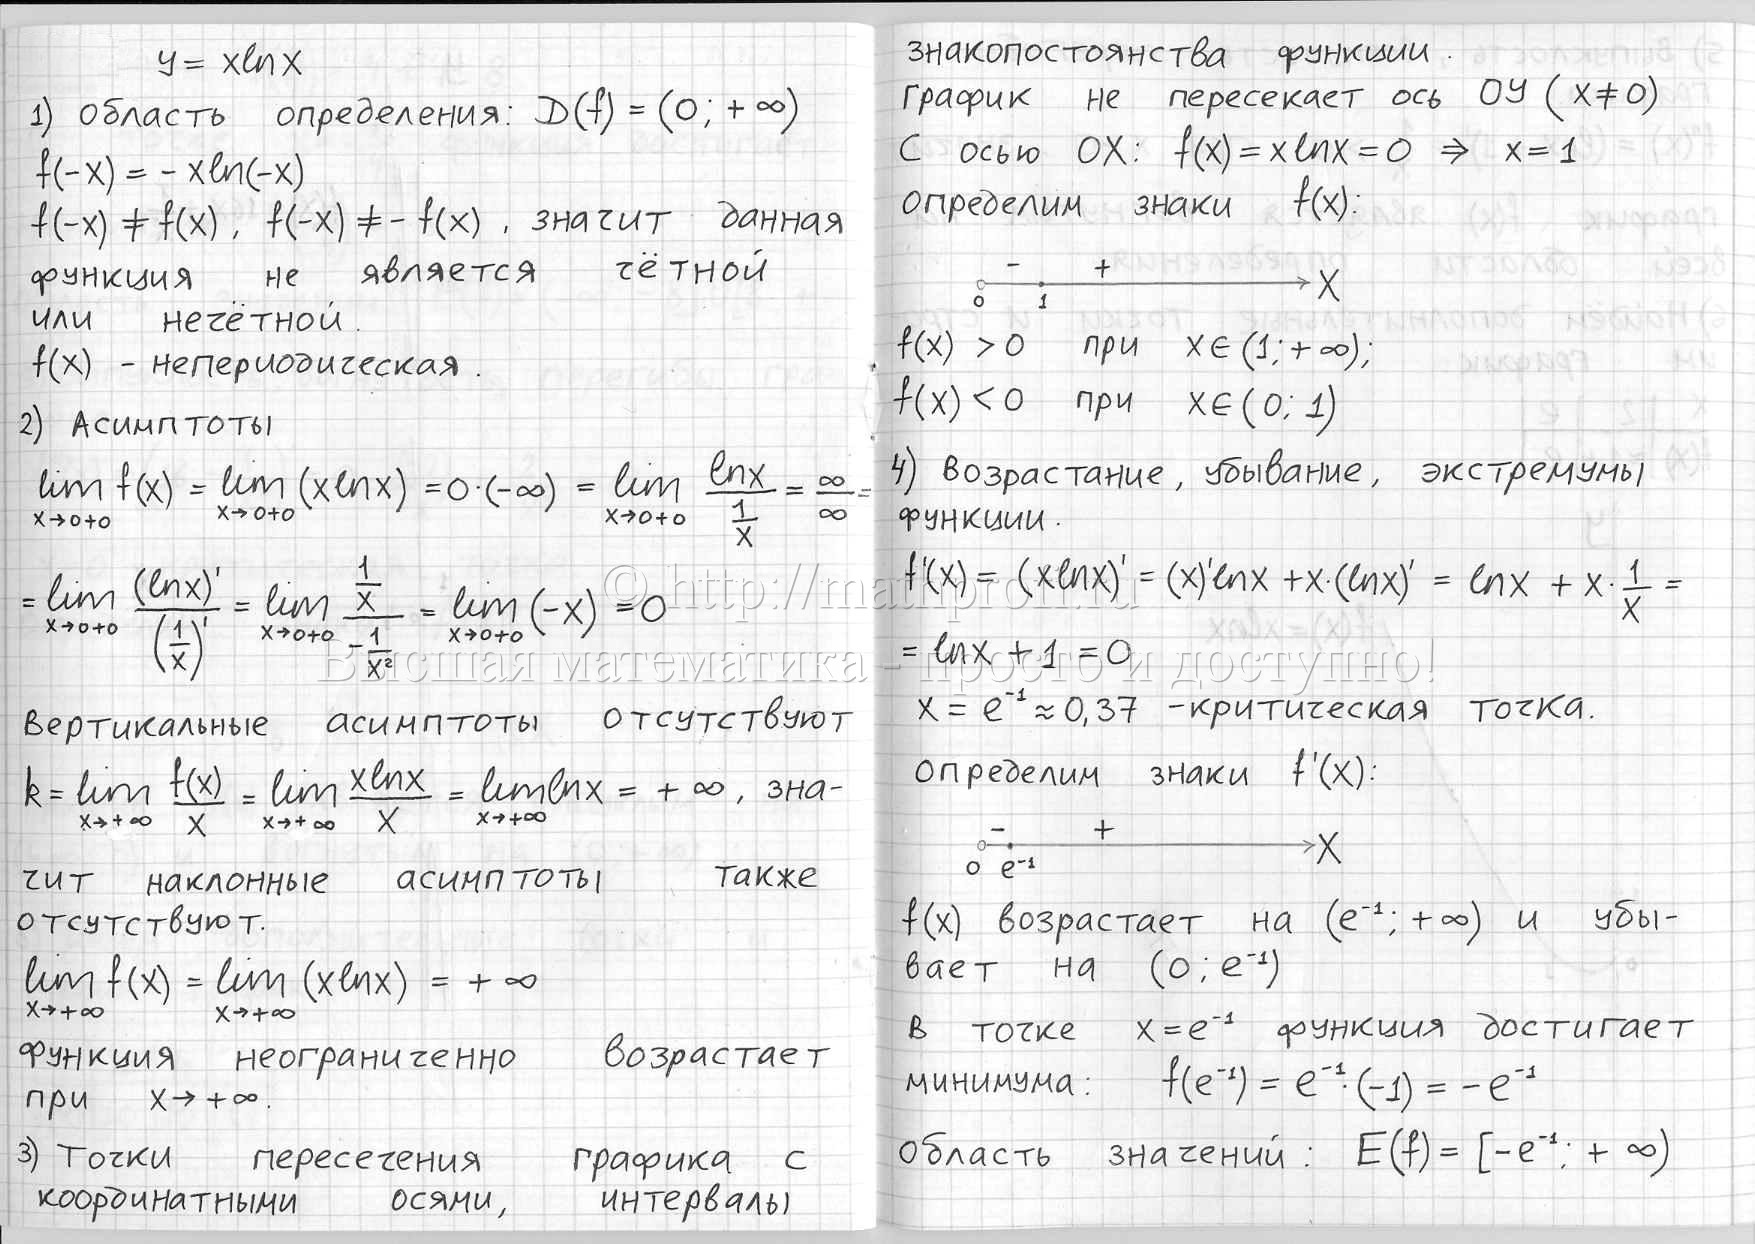 y = xlnx
1) Область определения: D(f) = (0; + ∞)
f(-x) = - xln(-x)
f(-x) ≠ f(x), f(-x) ≠ - f(x), значит данная
функция не является чётной
или нечётной.
f(x) - непериодическая.
2) Асимптоты
lim x→0+0 f(x) = lim x→0+0 (xlnx) = 0·(-∞) = lim x→0+0 lnx/(1/x) = ∞/∞ =
= lim x→0+0 (lnx)'/(1/x)' = lim x→0+0 (1/x)/(-1/x²) = lim x→0+0 (-x) = 0
Вертикальные асимптоты отсутствуют
k = lim x→+∞ f(x)/x = lim x→+∞ xlnx/x = lim x→+∞ lnx = + ∞, зна-
чит наклонные асимптоты также
отсутствуют.
lim x→+∞ f(x) = lim x→+∞ (xlnx) = + ∞
Функция неограниченно возрастает
при x→ +∞.
3) Точки пересечения графика с
координатными осями, интервалы
знакопостоянства функции.
График не пересекает ось OY (x≠0)
С осью OX: f(x) = xlnx = 0 ⇒ x = 1
Определим знаки f(x):
- +
0 1 X
f(x) > 0 при x∈(1; + ∞);
f(x) < 0 при x∈(0; 1)
4) Возрастание, убывание, экстремумы
функции.
f'(x) = (xlnx)' = (x)'lnx + x·(lnx)' = lnx + x·1/x =
= lnx + 1 = 0
x = e⁻¹ ≈ 0,37 - критическая точка.
Определим знаки f'(x):
- +
0 e⁻¹ X
f(x) возрастает на (e⁻¹; +∞) и убы-
вает на (0; e⁻¹)
В точке x = e⁻¹ функция достигает
минимума: f(e⁻¹) = e⁻¹·(-1) = - e⁻¹
Область значений: E(f) = [-e⁻¹; + ∞)
© http://mathprofi.ru
Высшая математика – просто и доступно!